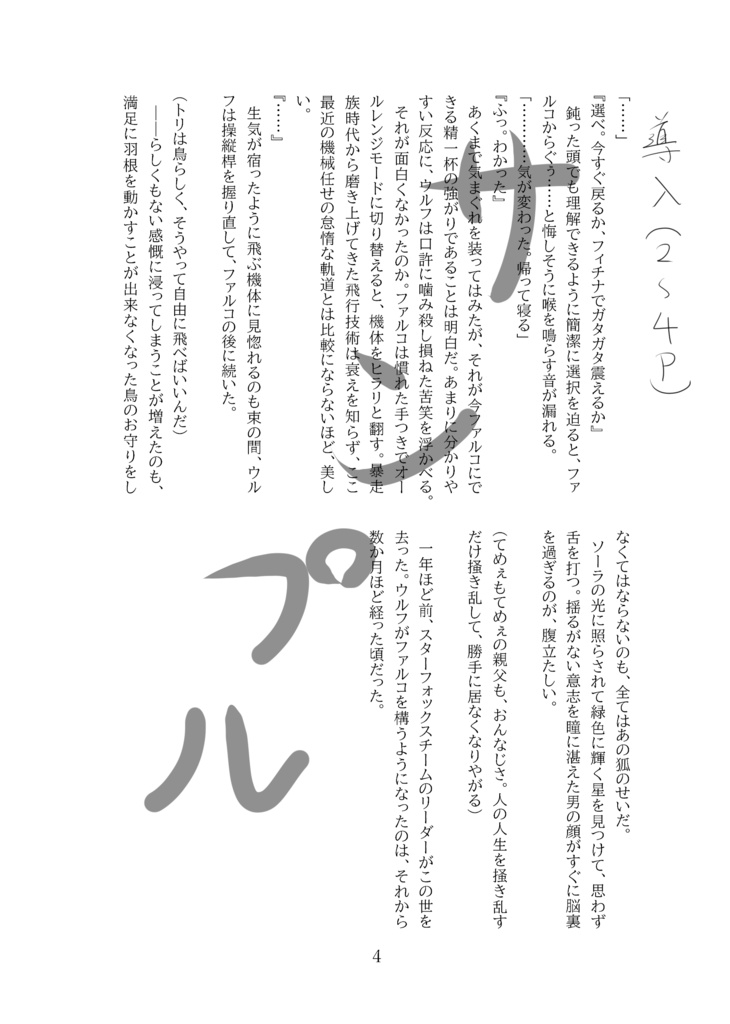 導入(2～4P)
「……」
『選べ。今すぐ戻るか、フィチナでガタガタ震えるか』
鈍った頭でも理解できるように簡潔に選択を迫ると、ファ
ルコからぐぅ……と悔しそうに喉を鳴らす音が漏れる。
「…………気が変わった。帰って寝る」
『ふっ。わかった』
あくまで気まぐれを装ってはみたが、それが今ファルコにで
きる精一杯の強がりであることは明白だ。あまりに分かりや
すい反応に、ウルフは口許に噛み殺し損ねた苦笑を浮かべる。
それが面白くなかったのか。ファルコは慣れた手つきでオー
ルレンジモードに切り替えると、機体をヒラリと翻す。暴走
族時代から磨き上げてきた飛行技術は衰えを知らず、ここ
最近の機械任せの怠惰な軌道とは比較にならないほど、美し
い。
『……』
生気が宿ったように飛ぶ機体に見惚れるのも束の間、ウル
フは操縦桿を握り直して、ファルコの後に続いた。
(トリは鳥らしく、そうやって自由に飛べばいいんだ)
――らしくもない感慨に浸ってしまうことが増えたのも、
満足に羽根を動かすことが出来なくなった鳥のお守りをし
なくてはならないのも、全てはあの狐のせいだ。
ソーラの光に照らされて緑色に輝く星を見つけて、思わず
舌を打つ。揺るがない意志を瞳に湛えた男の顔がすぐに脳裏
を過ぎるのが、腹立たしい。
(てめぇもてめぇの親父も、おんなじさ。人の人生を掻き乱す
だけ掻き乱して、勝手に居なくなりやがる)
一年ほど前、スターフォックスチームのリーダーがこの世を
去った。ウルフがファルコを構うようになったのは、それから
数か月ほど経った頃だった。
サンプル
4